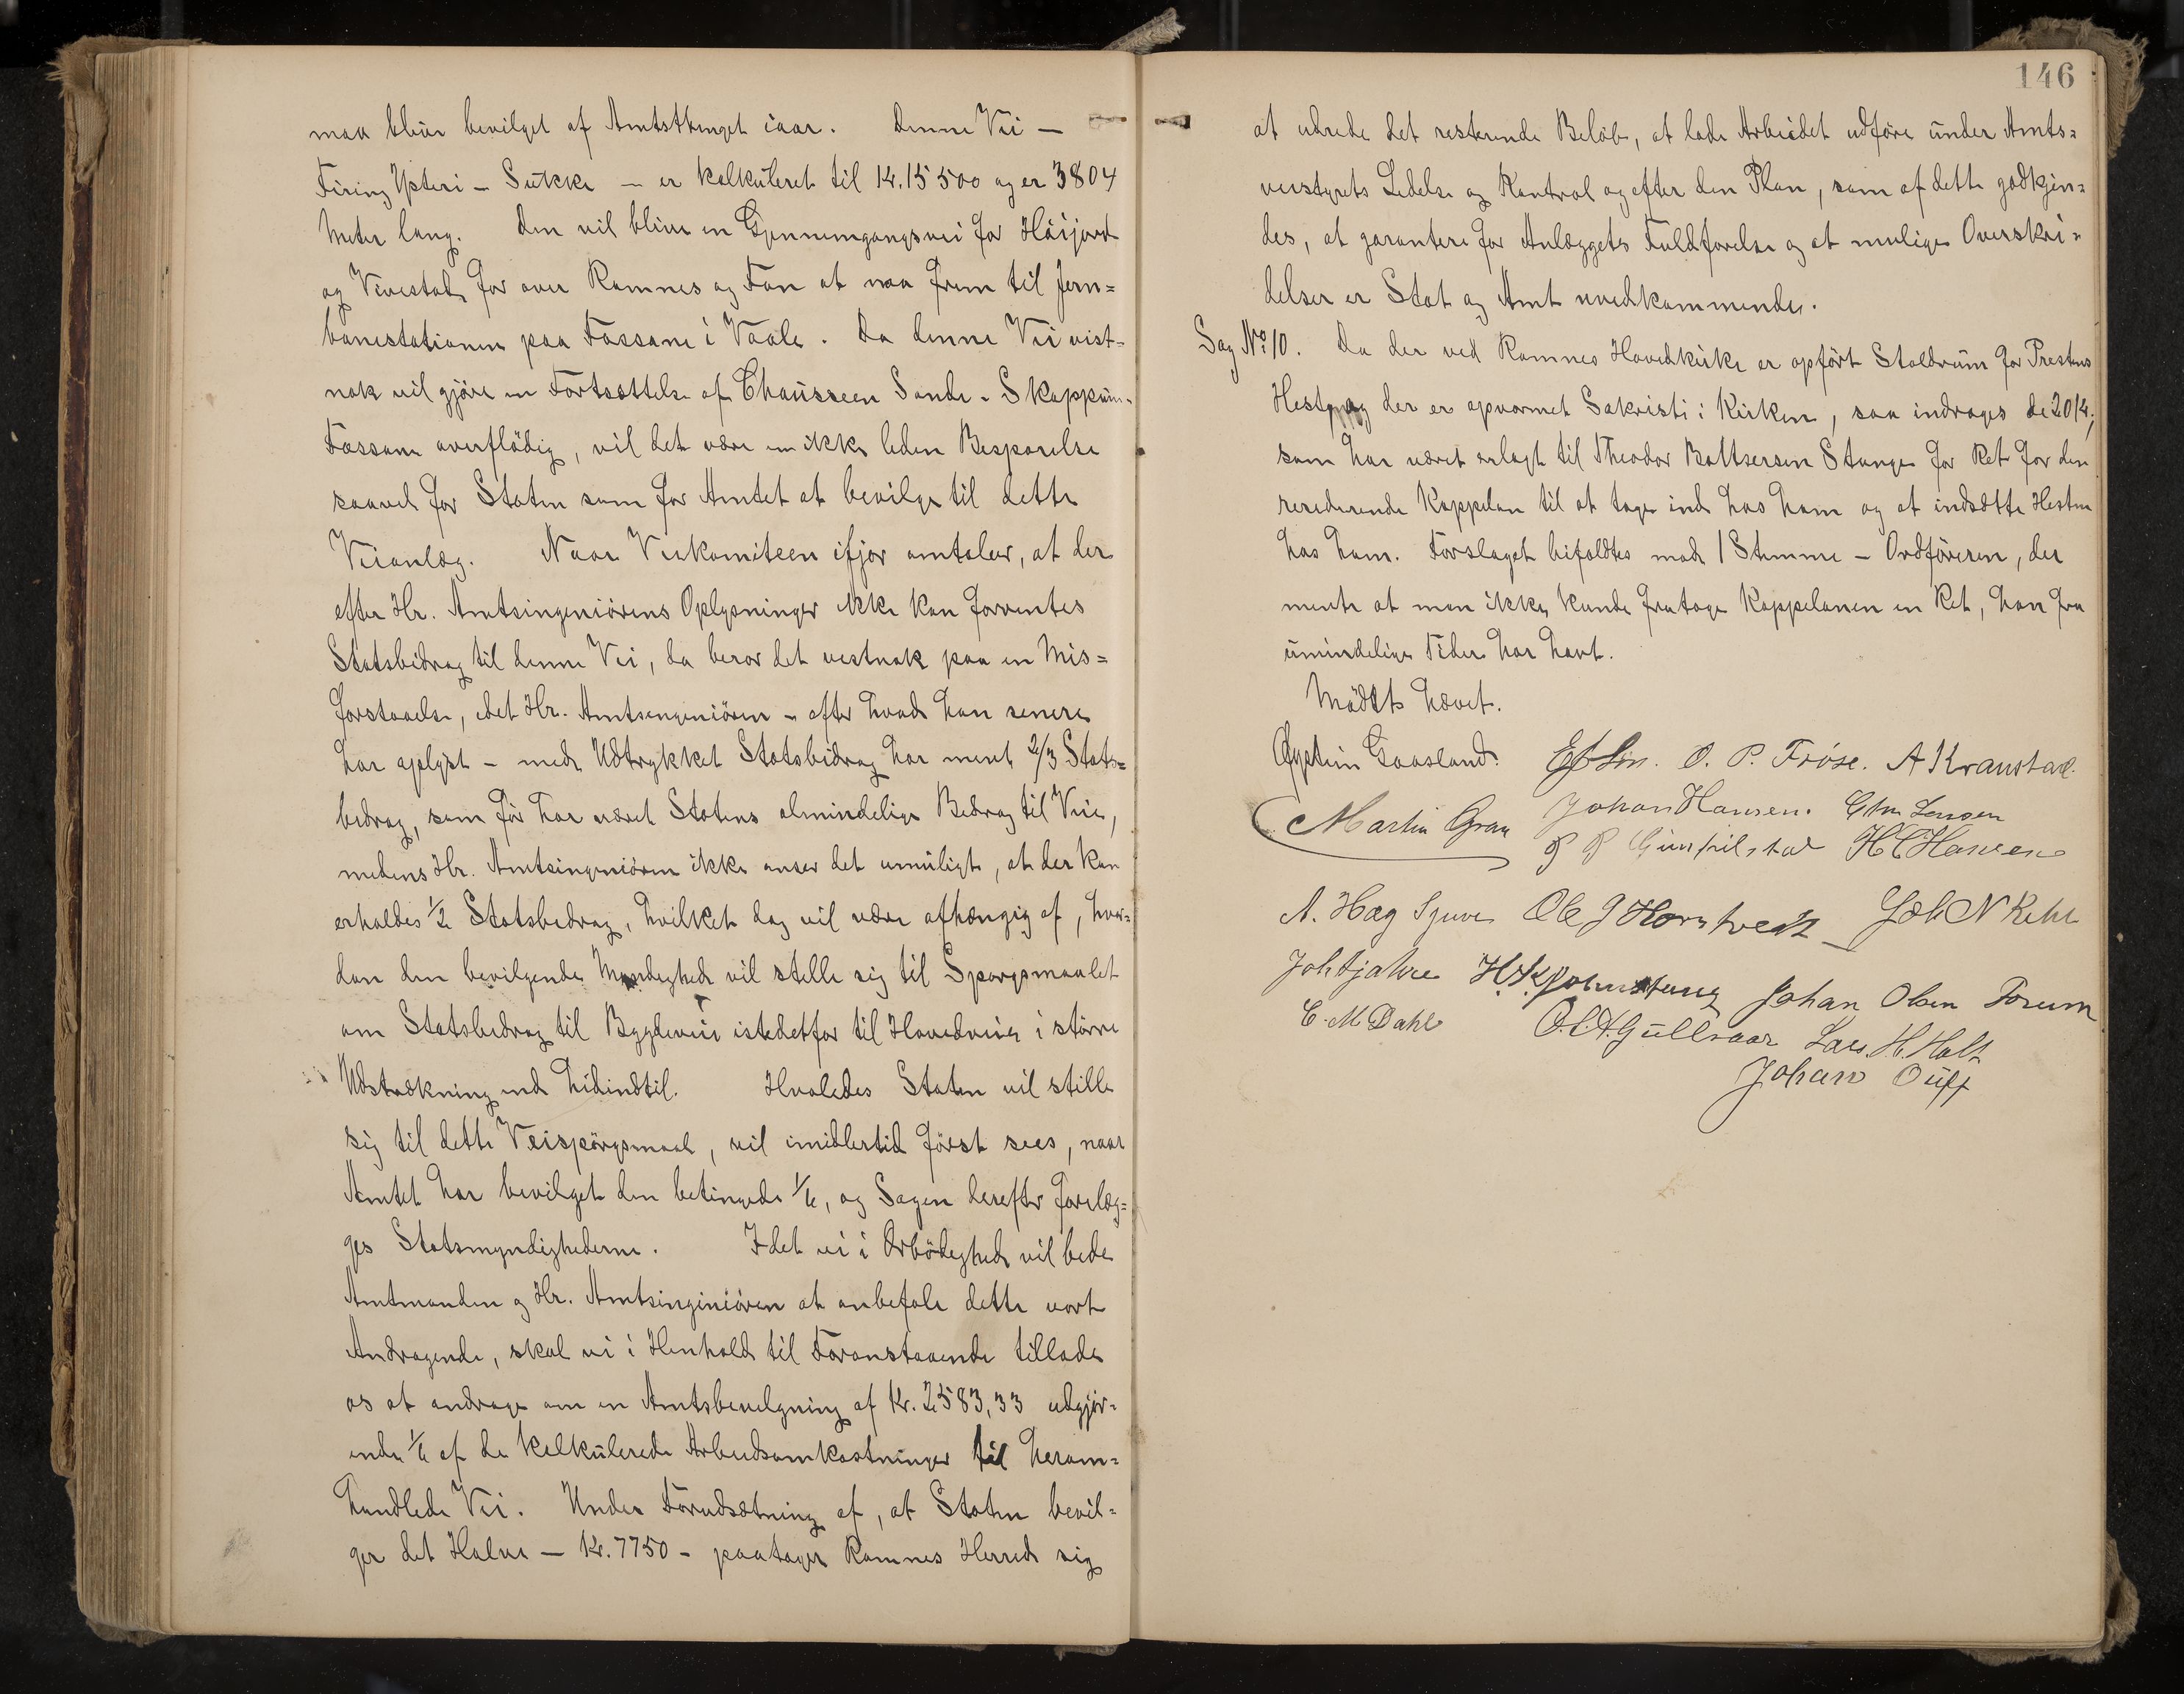 maa blive bevilget af Amtsthinget iaar. Denne Vei —
Firing Ysteri – Sukke – er kalkuleret til Kr. 15500 og er 3804
Meter lang. Den vil blive en Gjennemgangsvei for Höijord
og Vivestad for over Ramnes og Fon at naa frem til Jern=
banestationen paa Fossane i Vaale. Da denne Vei vist=
nok vil gjöre en Fortsættelse af Chausseen Sande - Skoppum-
Fossane overflödig, vil det være en ikke liden Besparelse
saavel for Staten som for Amtet at bevilge til dette
Veianlæg. Naar Veikomiteen ifjor omtaler, at der
efter Hr. Amtsingeniörens Oplysninger ikke kan forventes
Statsbidrag til denne Vei, da beror det vistnok paa en Mis=
forstaaelse, idet Hr. Amtsingeniören – efter hvad han senere
har oplyst – med Udtrykket Statsbidrag har ment 2/3 Stats=
bidrag, som för har været Statens almindelige Bidrag til Veie,
medens Hr. Amtsingeniören ikke anser det umuligt, at der kan
erholdes 1/2 Statsbidrag, hvilket dog vil være afhængig af, hvor-
dan den bevilgende Myndighed vil stille sig til Spörgsmaalet
om Statsbidrag til Bygdeveie istedetfor til Hovedveie i större
Udstrækning end hidindtil. Hvoledes Staten vil stille
sig til dette Veispörgsmaal, vil imidlertid först sees, naar
Amtet har bevilget den betingede 1/6, og Sagen derefter forelæg=
ges Statsmyndighederne. Idet vi i Ærbödighed vil bede
Amtmanden og Hr. Amtsinginiören at anbefale dette vort
Andragende, skal vi i Henhold til Foranstaaende tillade
os at andrage om en Amtsbevilgning af Kr. 2583,33 udgjör-
ende 1/6 af de kalkulerede Arbeidsomkostninger til herom=
handlede Vei. Under Forudsætning af, at Staten bevil=
ger det Halve — Kr. 7750 – paatager Ramnes Herred sig
146
at udrede det resterende Belöb, at lade Arbeidet udföre under Amts=
veistyrets Ledelse og Kontrol og efter den Plan, som af dette godkjen=
des, at garantere for Anlæggets Fuldförelse og at mulige Overskri=
delser er Stat og Amt uvedkommende.
Sag No. 10. Da der ved Ramnes Hovedkirke er opfört Staldrum for Prestens
Hest og der er opvarmet Sakristi i Kirken, saa inddrages de 20 Kr,
som har været erlagt til Theodor Baltsersen Stange for Ret for den
resederende Kappelan til at tage ind hos ham og at indsætte Hesten
hos ham. Forslaget bifaldtes mod 1 Stemme – Ordföreren, der
mente at man ikke kunde fratage Kappelanen en Ret, han fra
umindelige Tider har havt.
Mödet hævet.
Öystein Gaasland. O. P. Fröse. A Kraustad.
Martin Gran Johan Hansen. Chr. Larsen
H C Hansen
A. Hag Ole J Horntvedt
Johan Olsen
C. M Dahl O. A. Gullhaar Lars H. Holt
Johan